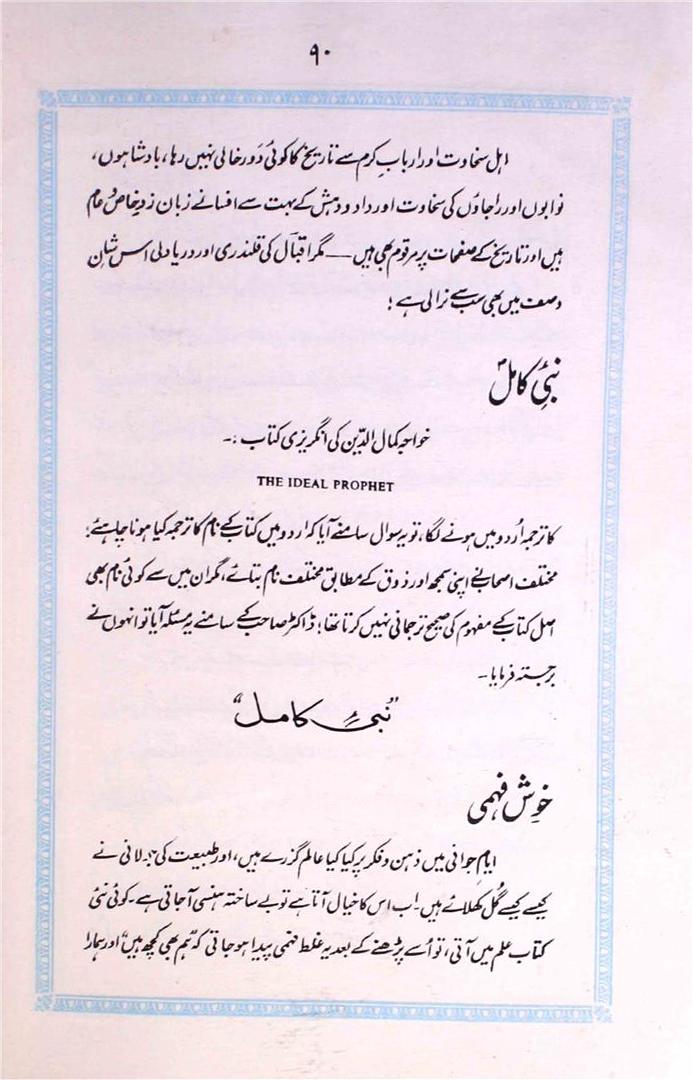 ۹۰
اہل سخاوت اور اربابِ کرم سے تاریخ کا کوئی دَور خالی نہیں رہا، بادشاہوں،
نوابوں اور راجاؤں کی سخاوت اور داد و دہش کے بہت سے افسانے زبان زدِ خاص و عام
ہیں اور تاریخ کے صفحات پر مرقوم بھی ہیں — مگر اقبالؔ کی قلندری اور دریا دلی اس شانِ
وصف میں بھی سب سے نرالی ہے؛
نبیٔ کاملؐ
خواجہ کمال الدّین کی انگریزی کتاب :۔
THE IDEAL PROPHET
کا ترجمہ اُردو میں ہونے لگا، تو یہ سوال سامنے آیا کہ اردو میں کتاب کے نام کا ترجمہ کیا ہونا چاہئے؛
مختلف اصحاب نے اپنی سمجھ اور ذوق کے مطابق مختلف نام بتائے، مگر ان میں سے کوئی نام بھی
اصل کتاب کے مفہوم کی صحیح ترجمانی نہیں کرتا تھا؛ ڈاکٹر صاحب کے سامنے یہ مسئلہ آیا تو انہوں نے
برجستہ فرمایا۔
"نبیٔ کامل"
خوش فہمی
ایامِ جوانی میں ذہن و فکر پر کیا کیا عالم گزرے ہیں، اور طبیعت کی جولانی نے
کیسے کیسے گُل کھلائے ہیں۔ اب اس کا خیال آتا ہے تو بے ساختہ ہنسی آجاتی ہے۔ کوئی نئی
کتاب علم میں آتی، تو اُسے پڑھنے کے بعد یہ غلط فہمی پیدا ہو جاتی کہ "ہم بھی کچھ ہیں" اور ہمارا